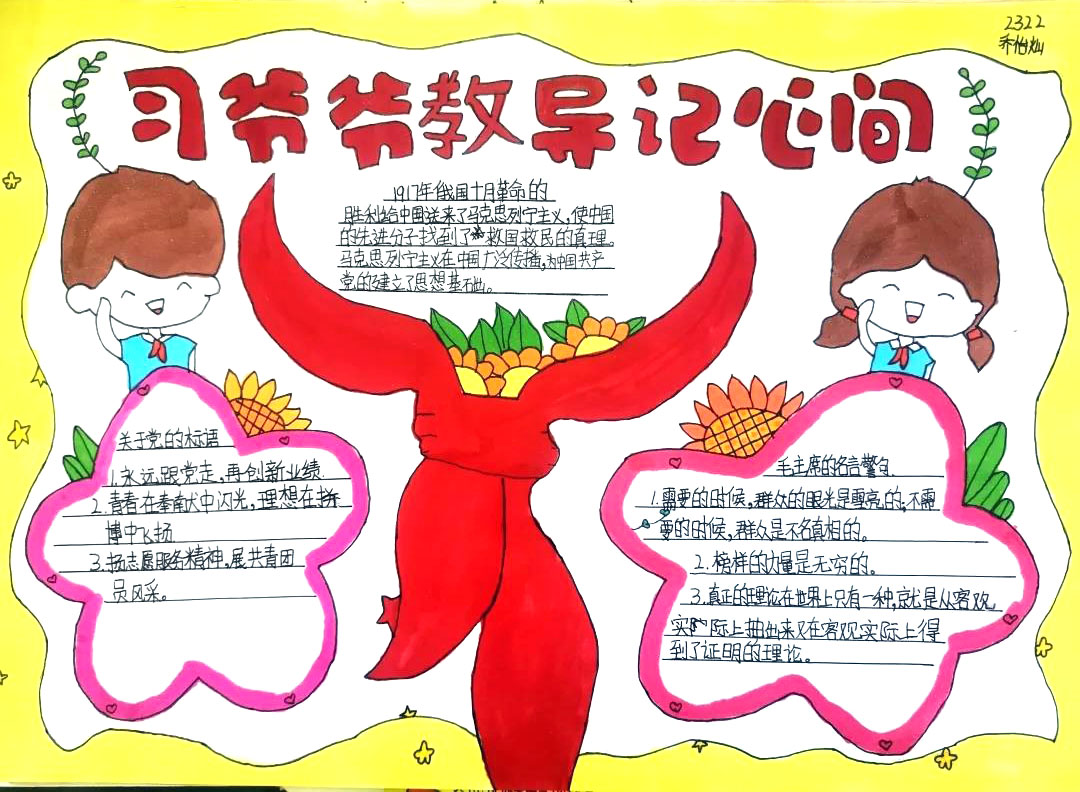 2322
乔怡灿
习爷爷教导记心间
1917年俄国十月革命的
胜利给中国送来了马克思列宁主义,使中国
的先进分子找到了救国救民的真理。
马克思列宁主义在中国广泛传播,为中国共产
党的建立了思想基础。
关于党的标语
1.永远跟党走,再创新业绩.
2.青春在奉献中闪光,理想在拼
博中飞扬
3.扬志愿服务精神,展共青团
员风采。
毛主席的名言警句.
1.需要的时候,群众的眼光是雪亮的;不需
要的时候,群众是不名真相的。
2.榜样的力量是无穷的。
3.真正的理论在世界上只有一种,就是从客观
实际上抽出来又在客观实际上得
到了证明的理论。